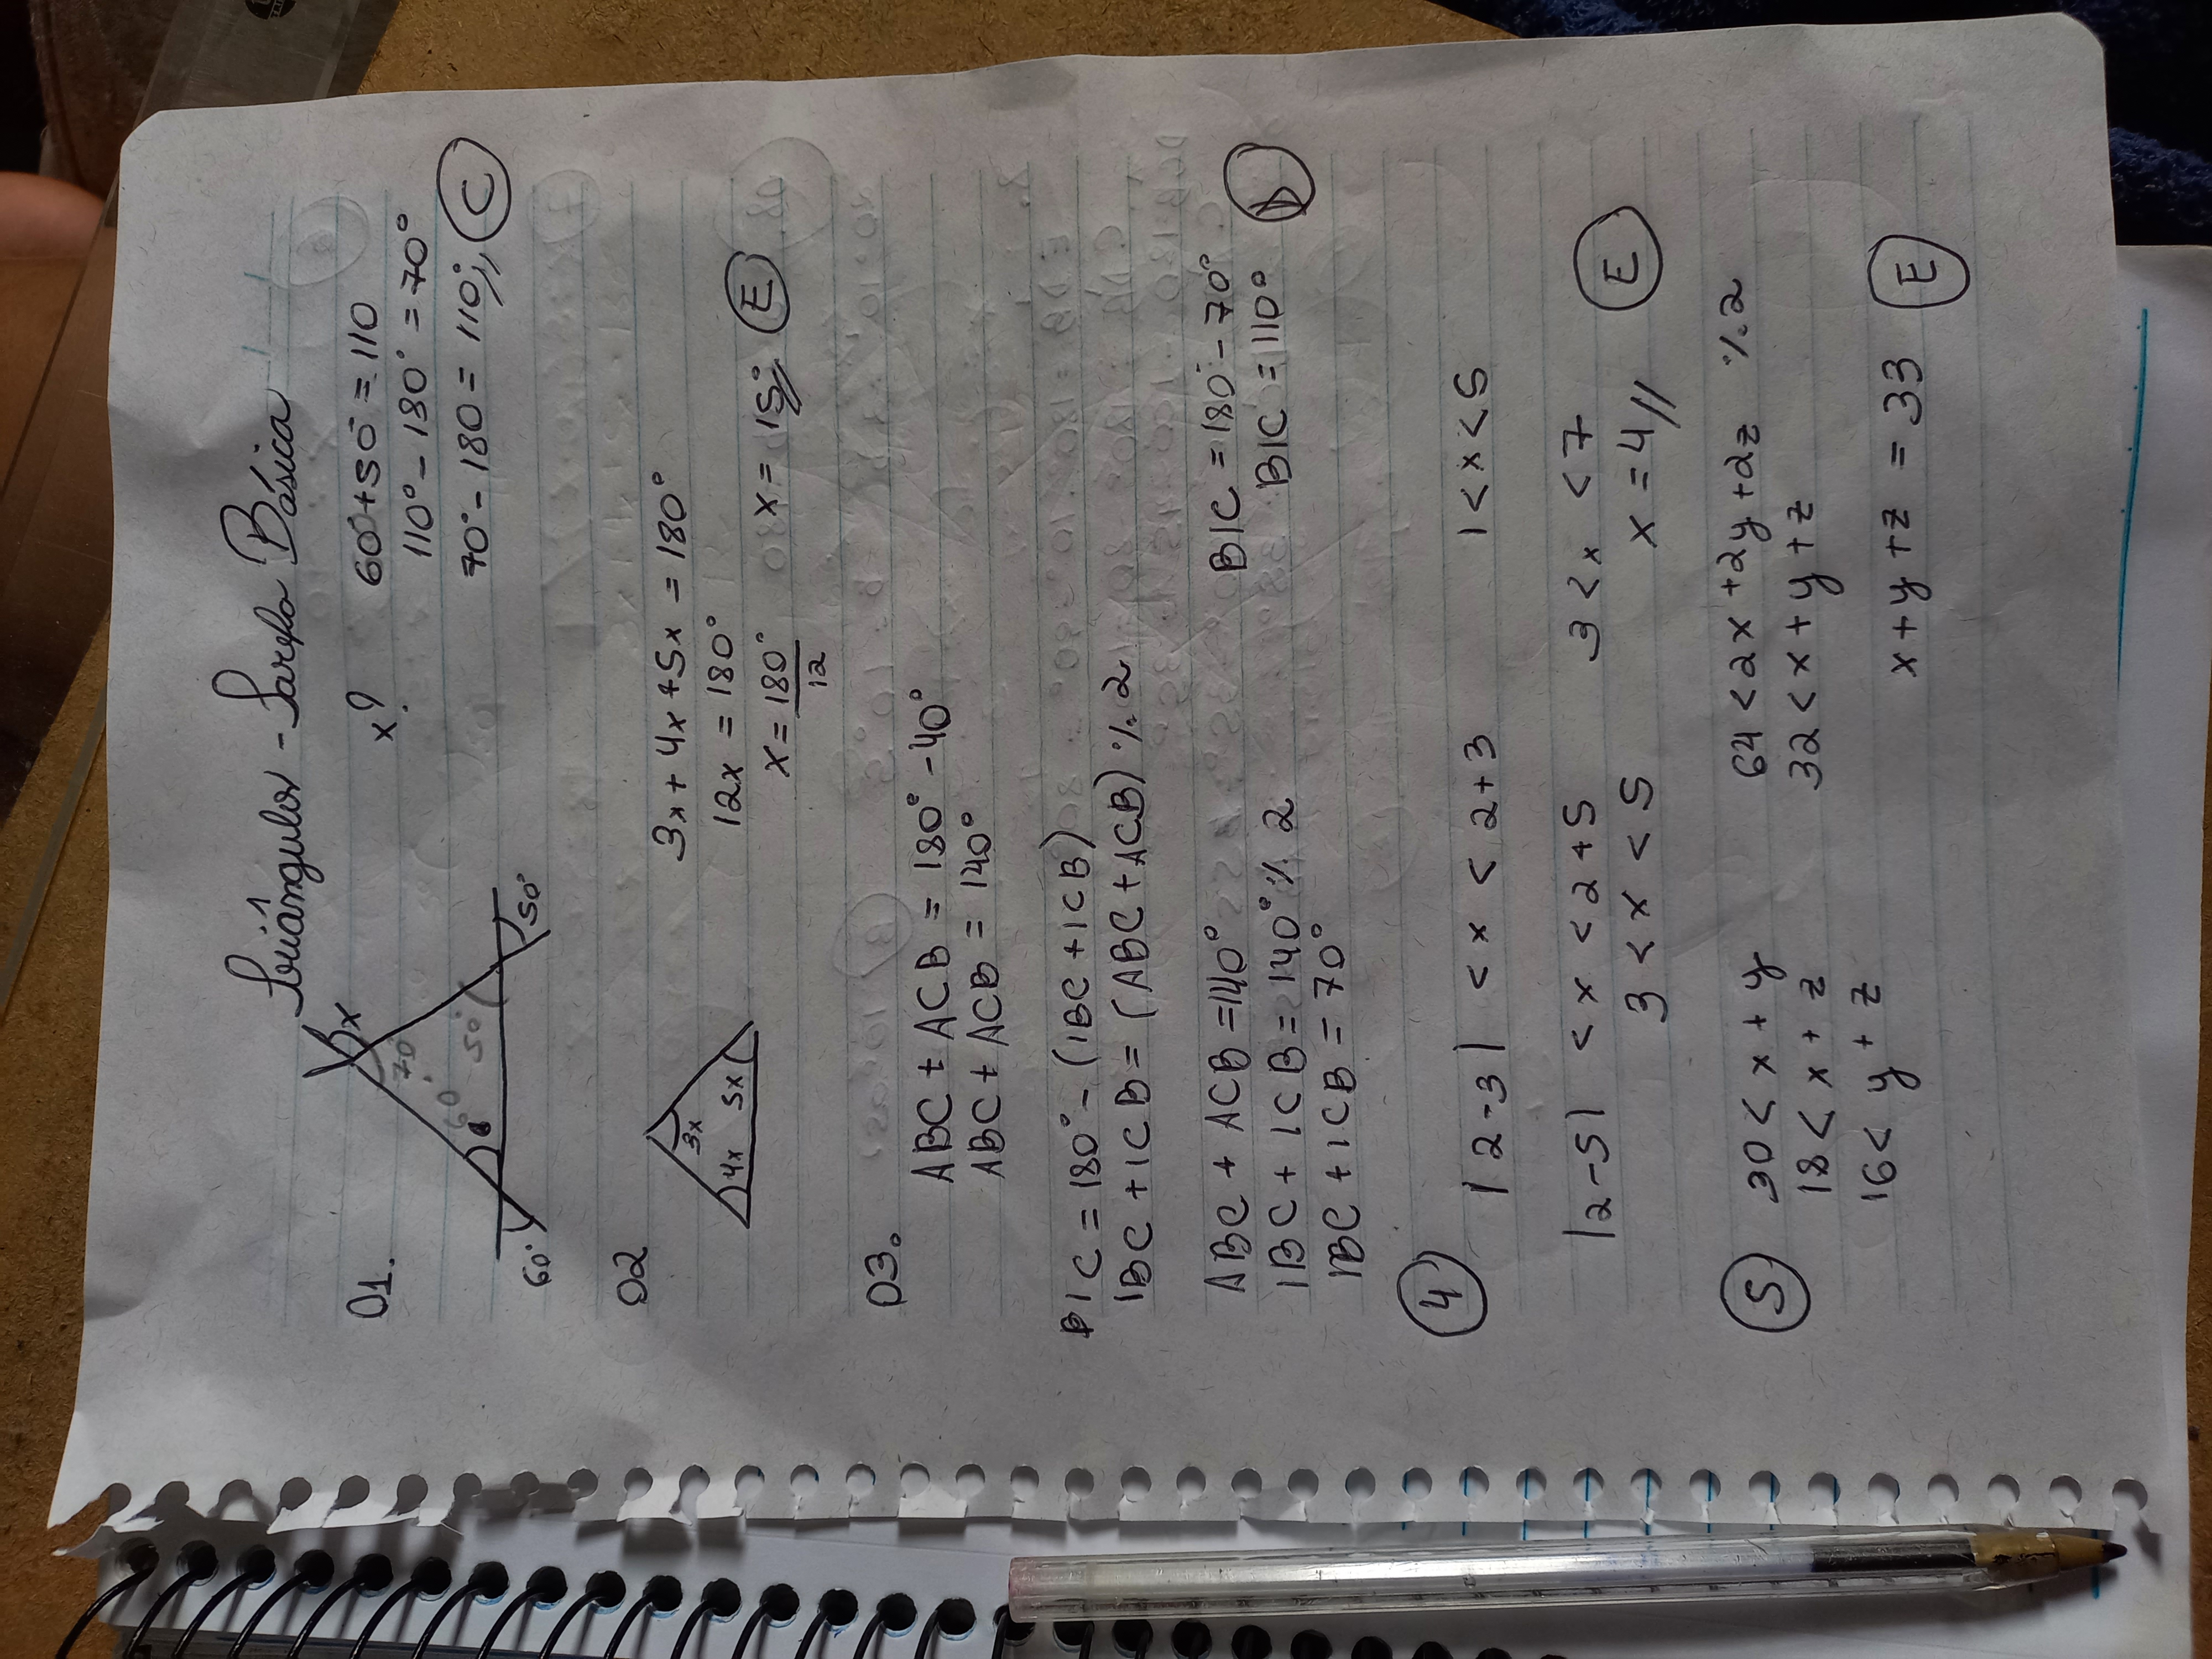 Triângulos - Tarefa Básica
01.
x
70°
60°
50°
60°
50°
x?
60°+50° = 110
110° - 180° = 70°
70° - 180 = 110°,, C
02
3x
4x 5x
3x + 4x + 5x = 180°
12x = 180°
x = 180°
12
x = 15° E
03.
ABC + ACB = 180° - 40°
ABC + ACB = 140°
BIC = 180° - (IBC + ICB)
IBC + ICB = (ABC + ACB) ÷ 2
ABC + ACB = 140°
IBC + ICB = 140° ÷ 2
IBC + ICB = 70°
BIC = 180° - 70°
BIC = 110° D
4
|2-3| < x < 2+3 1 < x < 5
|2-5| < x < 2+5 3 < x < 7
3 < x < 5 x = 4 // E
5
30 < x + y
18 < x + z
16 < y + z
64 < 2x + 2y + 2z ÷ 2
32 < x + y + z
x + y + z = 33 E